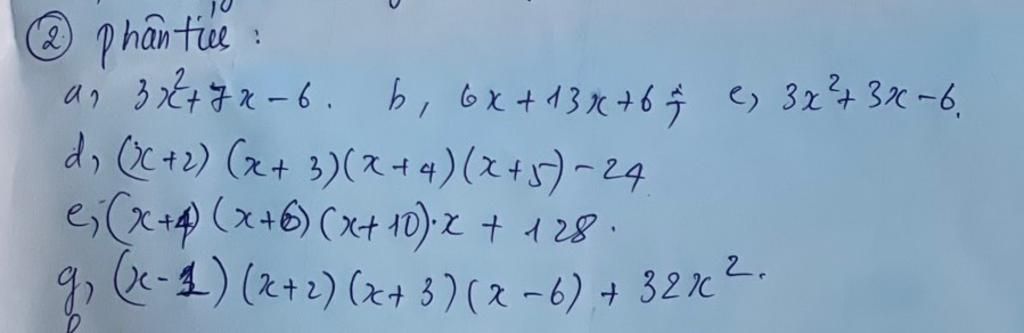 ② phântích :
a, 3x²+7x-6. b, 6x+13x+6; c, 3x²+3x-6.
d, (x+2) (x+3)(x+4)(x+5)-24
e, (x+4) (x+6) (x+10).x + 128.
g, (x-1) (x+2) (x+3) (x-6) + 32x².